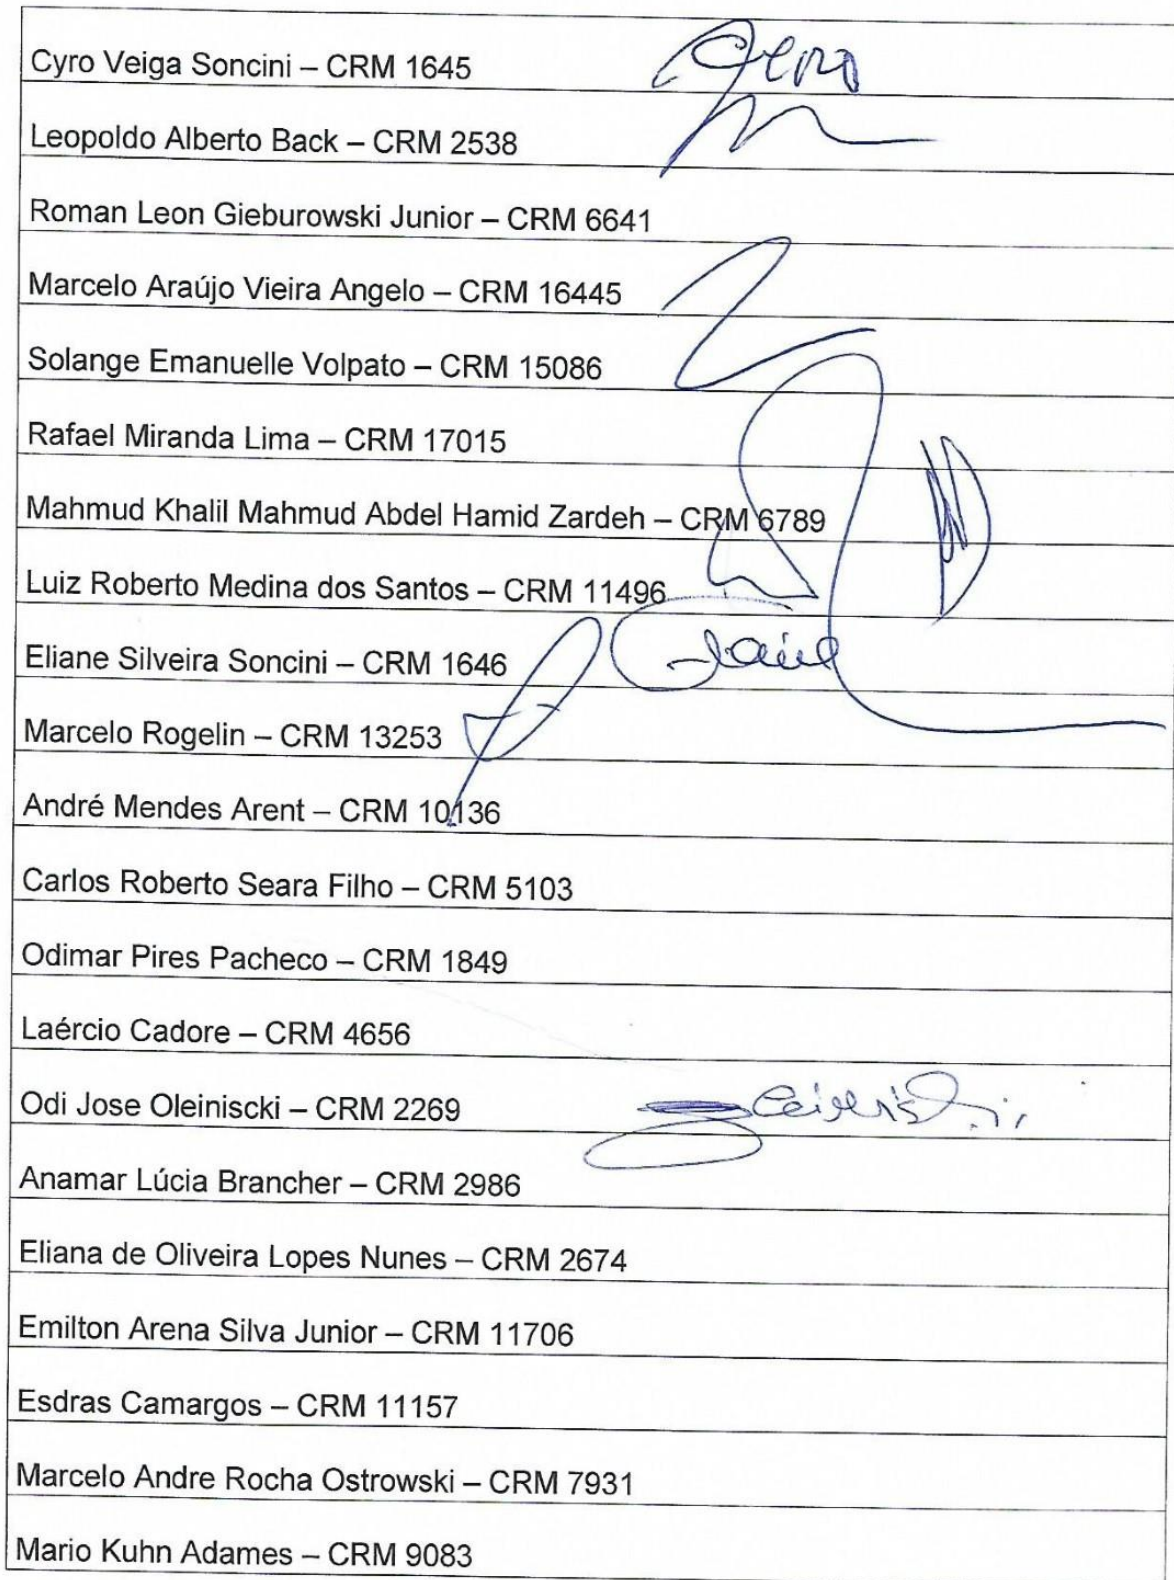 Cyro Veiga Soncini – CRM 1645
Leopoldo Alberto Back – CRM 2538
Roman Leon Gieburowski Junior – CRM 6641
Marcelo Araújo Vieira Angelo – CRM 16445
Solange Emanuelle Volpato – CRM 15086
Rafael Miranda Lima – CRM 17015
Mahmud Khalil Mahmud Abdel Hamid Zardeh – CRM 6789
Luiz Roberto Medina dos Santos – CRM 11496
Eliane Silveira Soncini – CRM 1646
Marcelo Rogelin – CRM 13253
André Mendes Arent – CRM 10136
Carlos Roberto Seara Filho – CRM 5103
Odimar Pires Pacheco – CRM 1849
Laércio Cadore – CRM 4656
Odi Jose Oleiniscki – CRM 2269
Anamar Lúcia Brancher – CRM 2986
Eliana de Oliveira Lopes Nunes – CRM 2674
Emilton Arena Silva Junior – CRM 11706
Esdras Camargos – CRM 11157
Marcelo Andre Rocha Ostrowski – CRM 7931
Mario Kuhn Adames – CRM 9083